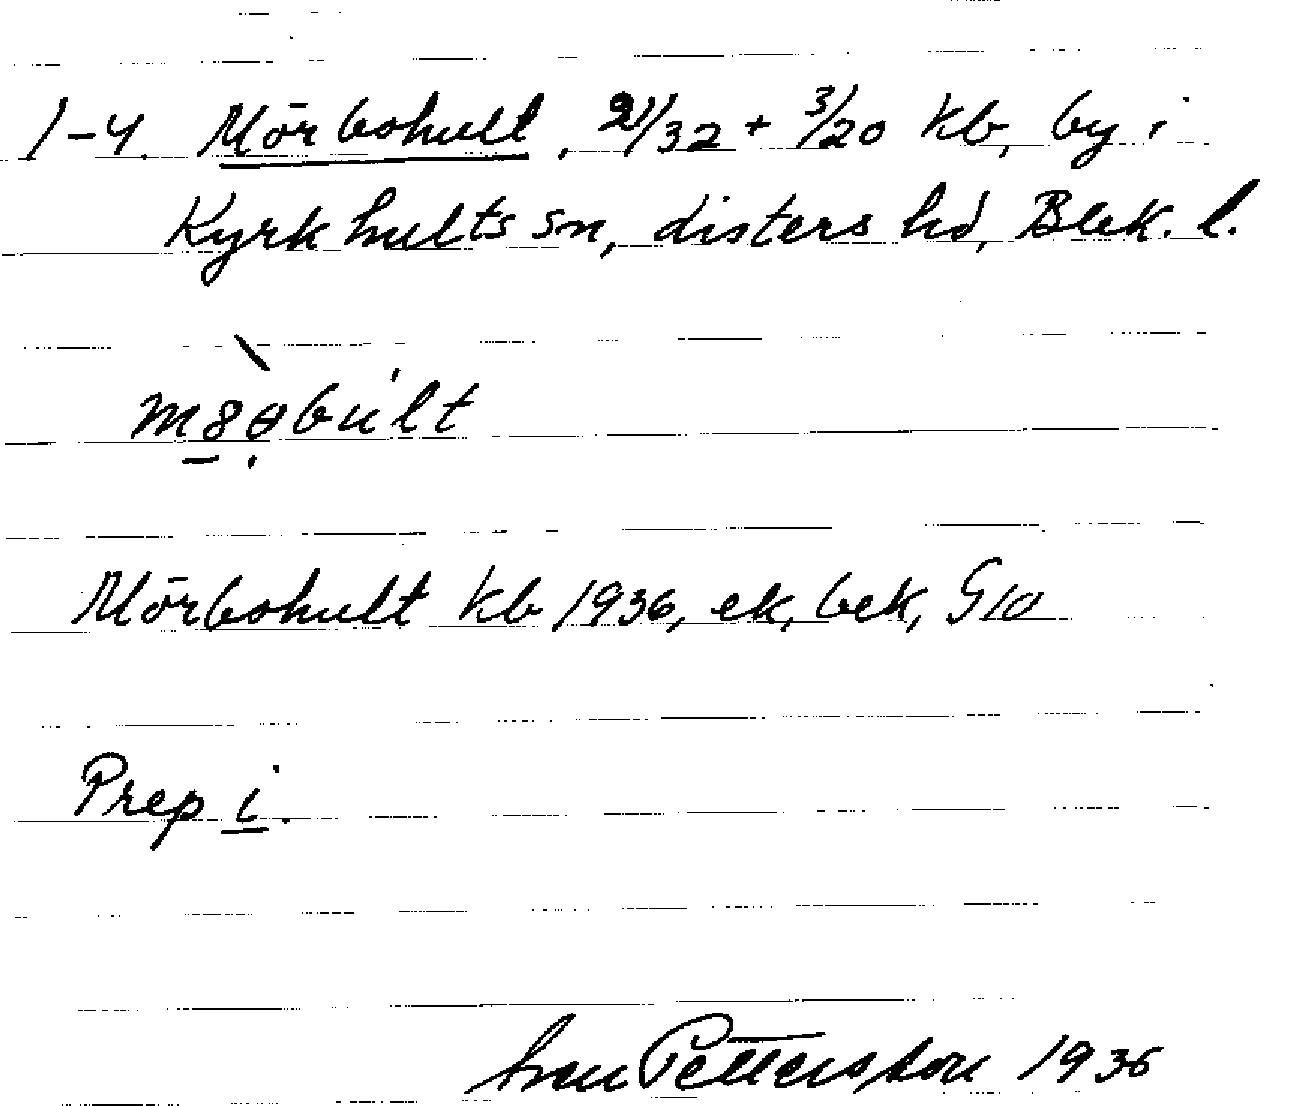 1-4. Mörbohult, 21/32 + 3/20 kb, by i
Kyrkhults sn, Listers hd, Blek. l.
Mörbohult kb 1936, ek, bek, G10
Prep i.
Pettersson 1936